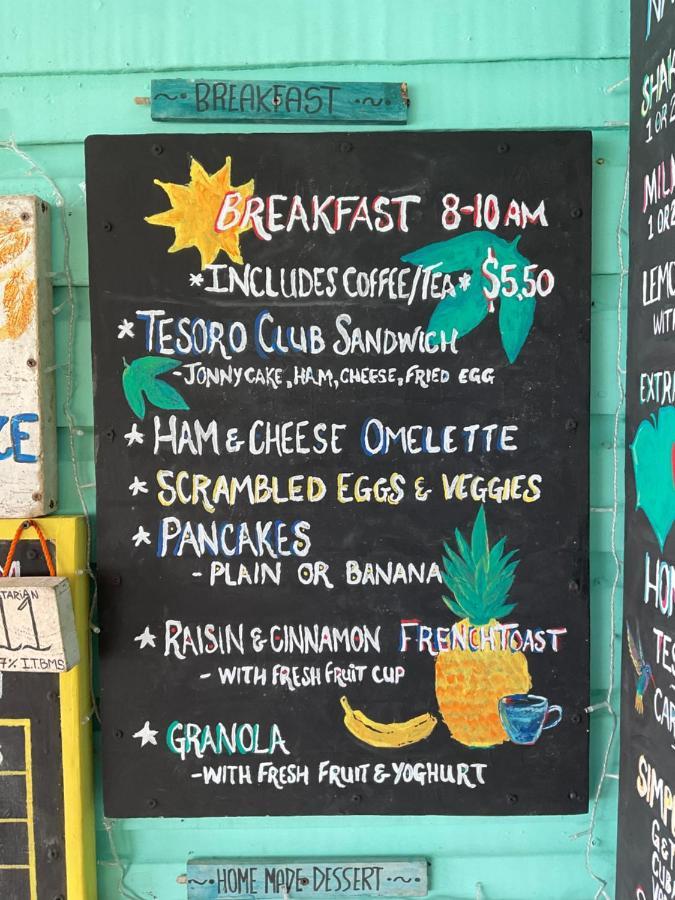 ~ BREAKFAST ~
BREAKFAST 8-10 AM
*INCLUDES COFFEE/TEA* $5,50
*TESORO CLUB SANDWICH
-JONNYCAKE, HAM, CHEESE, FRIED EGG
*HAM & CHEESE OMELETTE
*SCRAMBLED EGGS & VEGGIES
*PANCAKES
-PLAIN OR BANANA
*RAISIN & CINNAMON FRENCHTOAST
- WITH FRESH FRUIT CUP
*GRANOLA
-WITH FRESH FRUIT & YOGHURT
~HOME MADE DESSERT~
11
7% I.T.B.M.S
1 OR 2
1 OR 2